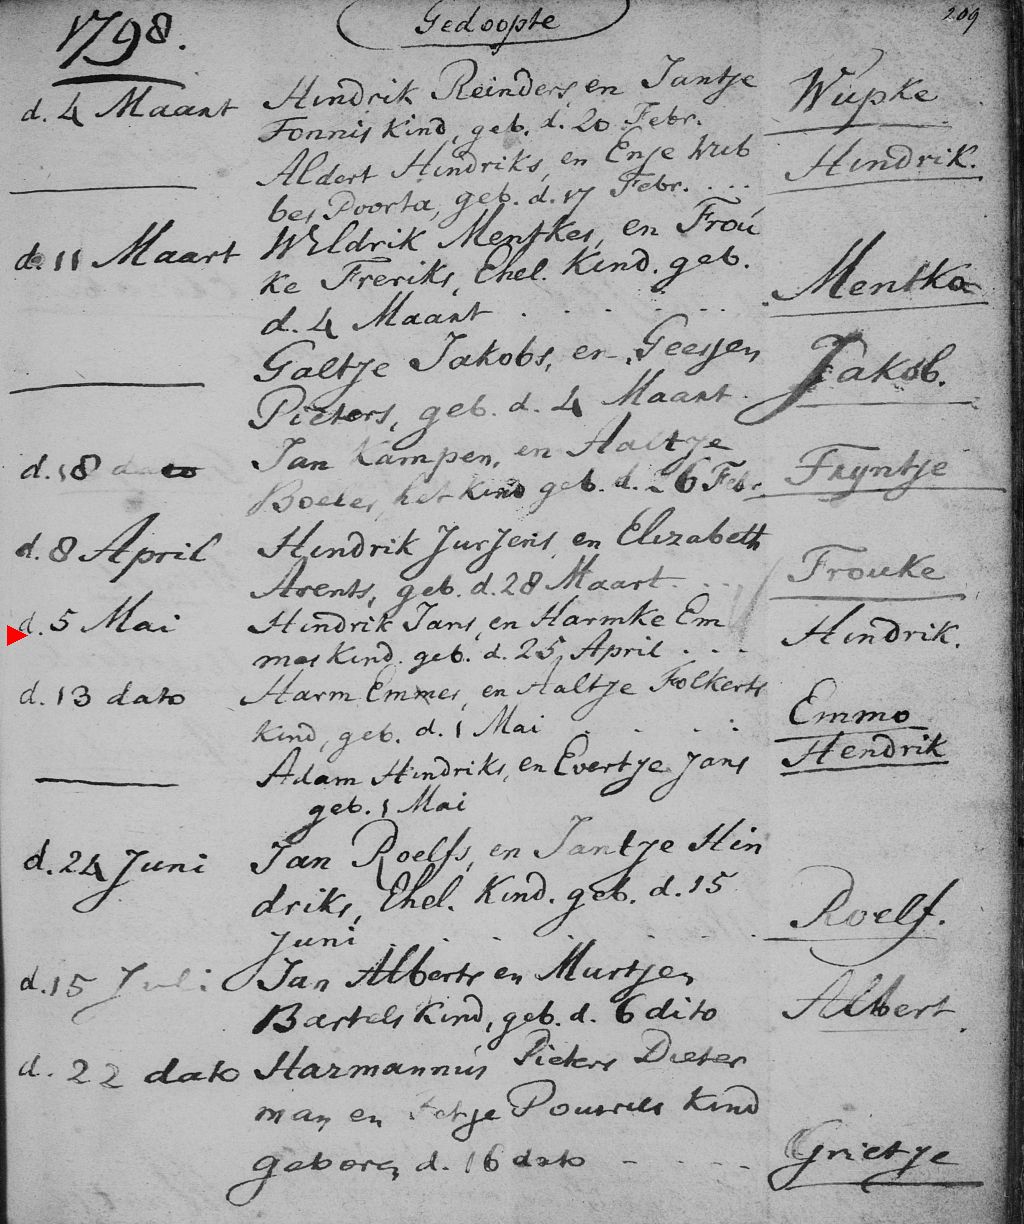 1798. Gedoopte 209
d. 4 Maart Hindrik Reinders, en Jantje Wupke
Fonnis Kind, geb. d. 20 Febr.
Aldert Hindriks, en Enje Wub Hindrik.
bes Poorta, geb. d. 17 Febr. . . . .
d. 11 Maart Weldrik Mentkes, en Frou
ke Freriks, Ehel. Kind. geb. Mentko
d. 4 Maart . . . . . . .
Galtje Jakobs, en Geesjen Jakob.
Pieters, geb. d. 4 Maart.
d. 18 dato Jan Kampen, en Aaltje Fryntje
Boeles, het Kind geb. d. 26 Febr.
d. 8 April Hindrik Jurjens, en Elizabeth
Arents, geb. d. 28 Maart . . . Frouke
d. 5 Mai Hindrik Jans, en Harmke Em Hindrik.
mes Kind. geb. d. 25 April . . . .
d. 13 dato Harm Emmes, en Aaltje Folkerts
Kind, geb. d. 1 Mai . . . . . Emmo
Adam Hindriks, en Evertje Jans Hendrik
geb. 1 Mai
d. 24 Juni Jan Roelfs, en Jantje Hin
driks, Ehel. Kind. geb. d. 15 Roelf.
Juni . . . . . . .
d. 15 Juli Jan Alberts en Murtjen
Bartels Kind, geb. d. 6 dito Albert
d. 22 dato Harmannus Pieters Dieter
man en Fetje Kind
geboren d. 16 dato - - - - - Grietje